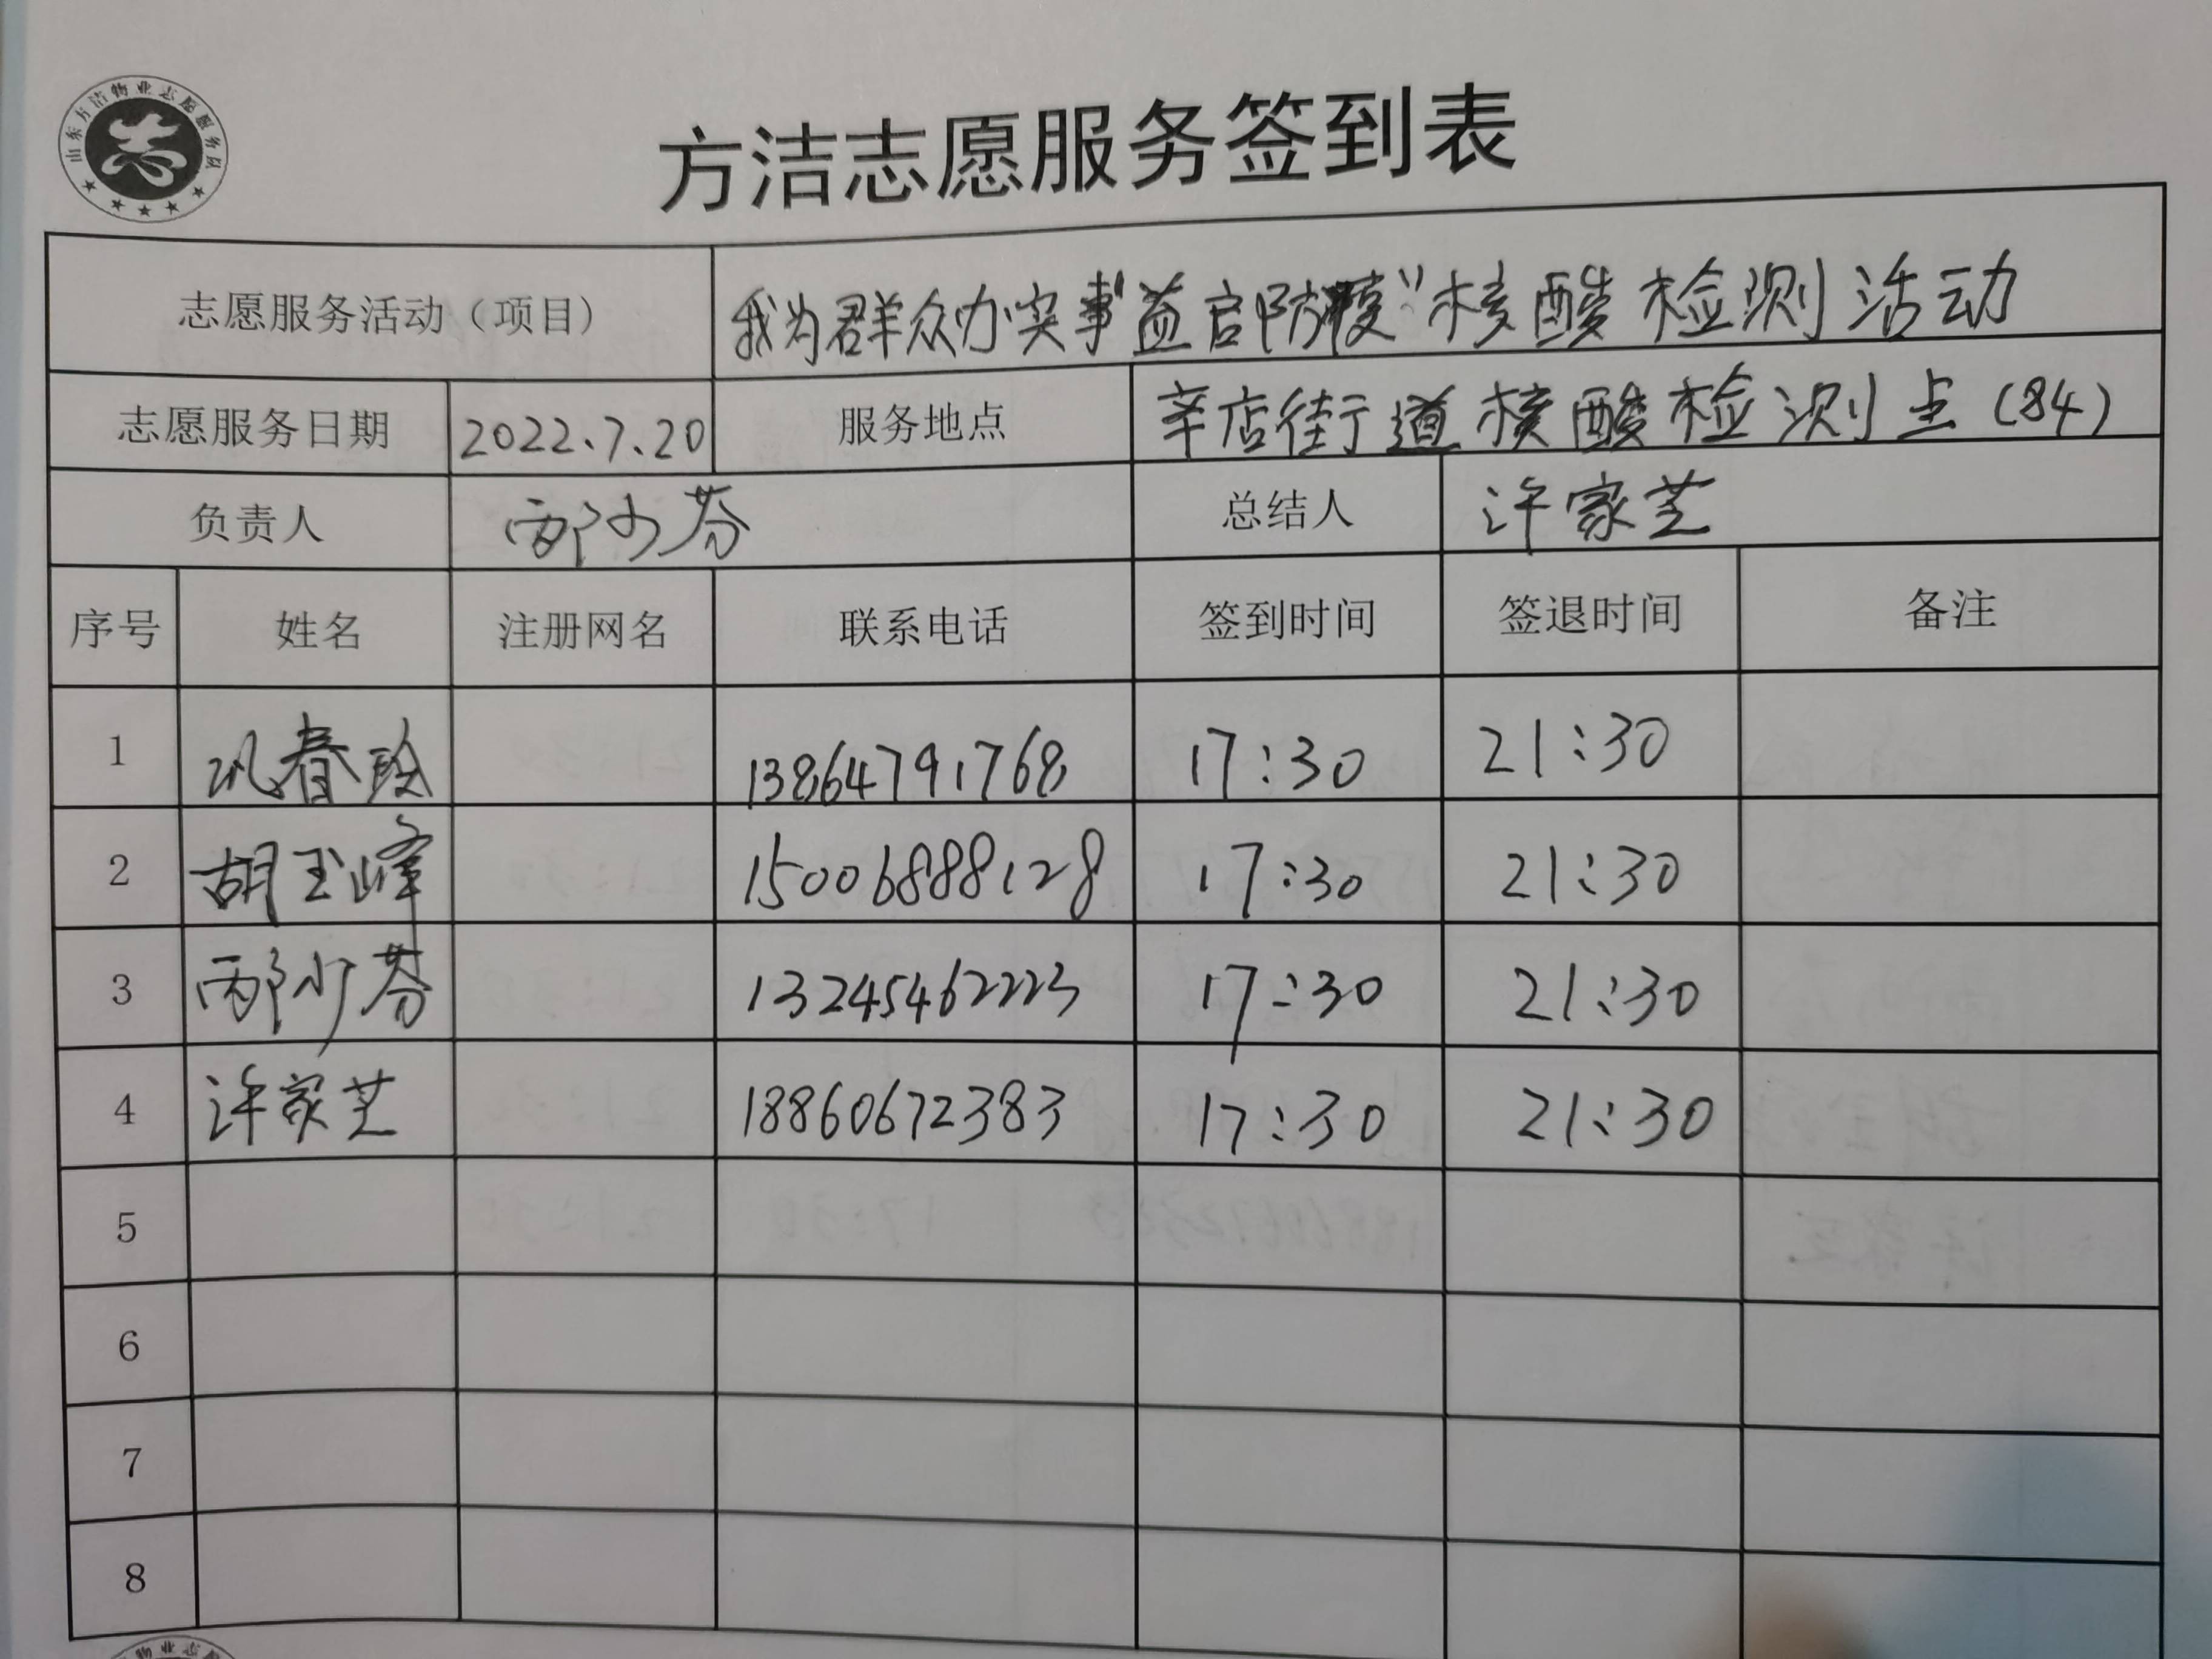 山东方洁物业志愿服务队
方洁志愿服务签到表
志愿服务活动（项目） 我为群众办实事“益启防疫”核酸检测活动
志愿服务日期 2022.7.20 服务地点 辛店街道核酸检测点（84）
负责人 邴少芬 总结人 许家芝
序号 姓名 注册网名 联系电话 签到时间 签退时间 备注
1 巩春玲 13864791768 17:30 21:30
2 胡玉峰 15006888128 17:30 21:30
3 邴少芬 13245462223 17:30 21:30
4 许家芝 18860672383 17:30 21:30
5
6
7
8
物业志愿